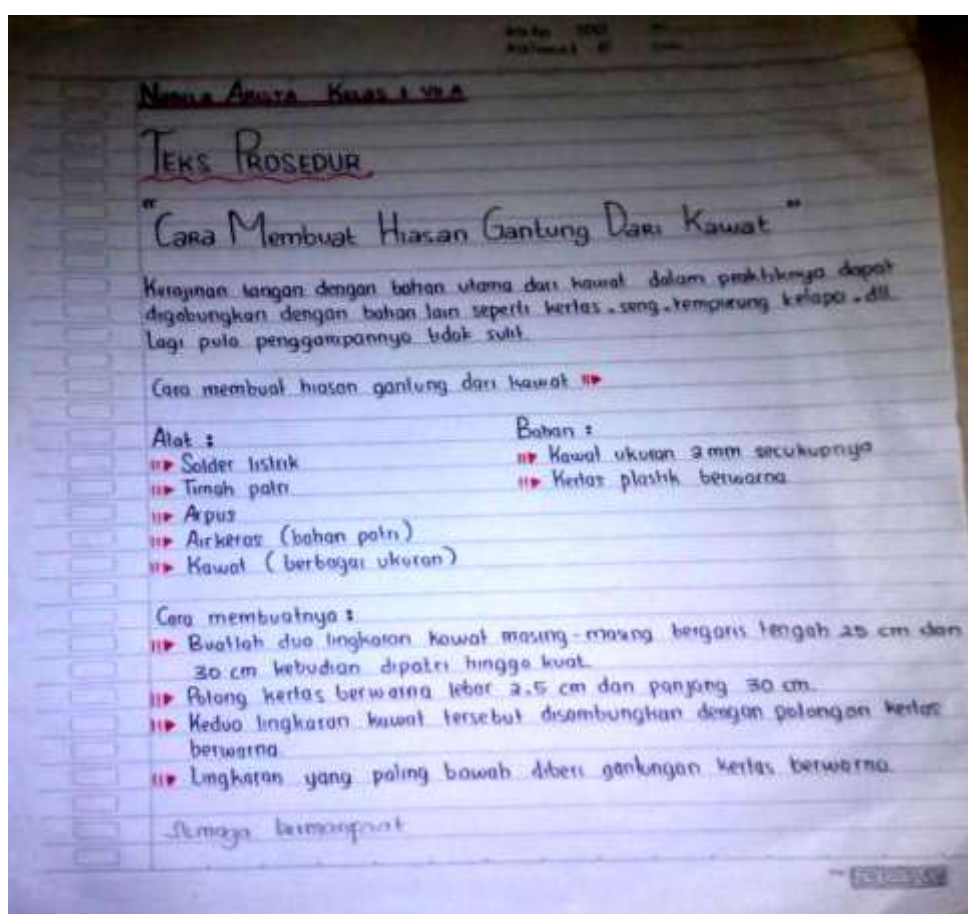 Kelas : VII A
TEKS PROSEDUR
"CARA Membuat Hiasan Gantung Dari Kawat"
Kerajinan tangan dengan bahan utama dari kawat dalam praktiknya dapat
digabungkan dengan bahan lain seperti kertas, seng, tempurung kelapa, dll.
Lagi pula penggarapannya tidak sulit.
Cara membuat hiasan gantung dari kawat
Alat :
Solder listrik
Timah patri
Arpus
Air keras (bahan patri)
Kawat (berbagai ukuran)
Bahan :
Kawat ukuran 2 mm secukupnya
Kertas plastik berwarna
Cara membuatnya :
Buatlah dua lingkaran kawat masing-masing bergaris tengah 25 cm dan
30 cm kebudian dipatri hingga kuat.
Potong kertas berwarna lebar 2.5 cm dan panjang 30 cm.
Kedua lingkaran kawat tersebut disambungkan dengan potongan kertas
berwarna.
Lingkaran yang paling bawah diberi gantungan kertas berwarna.